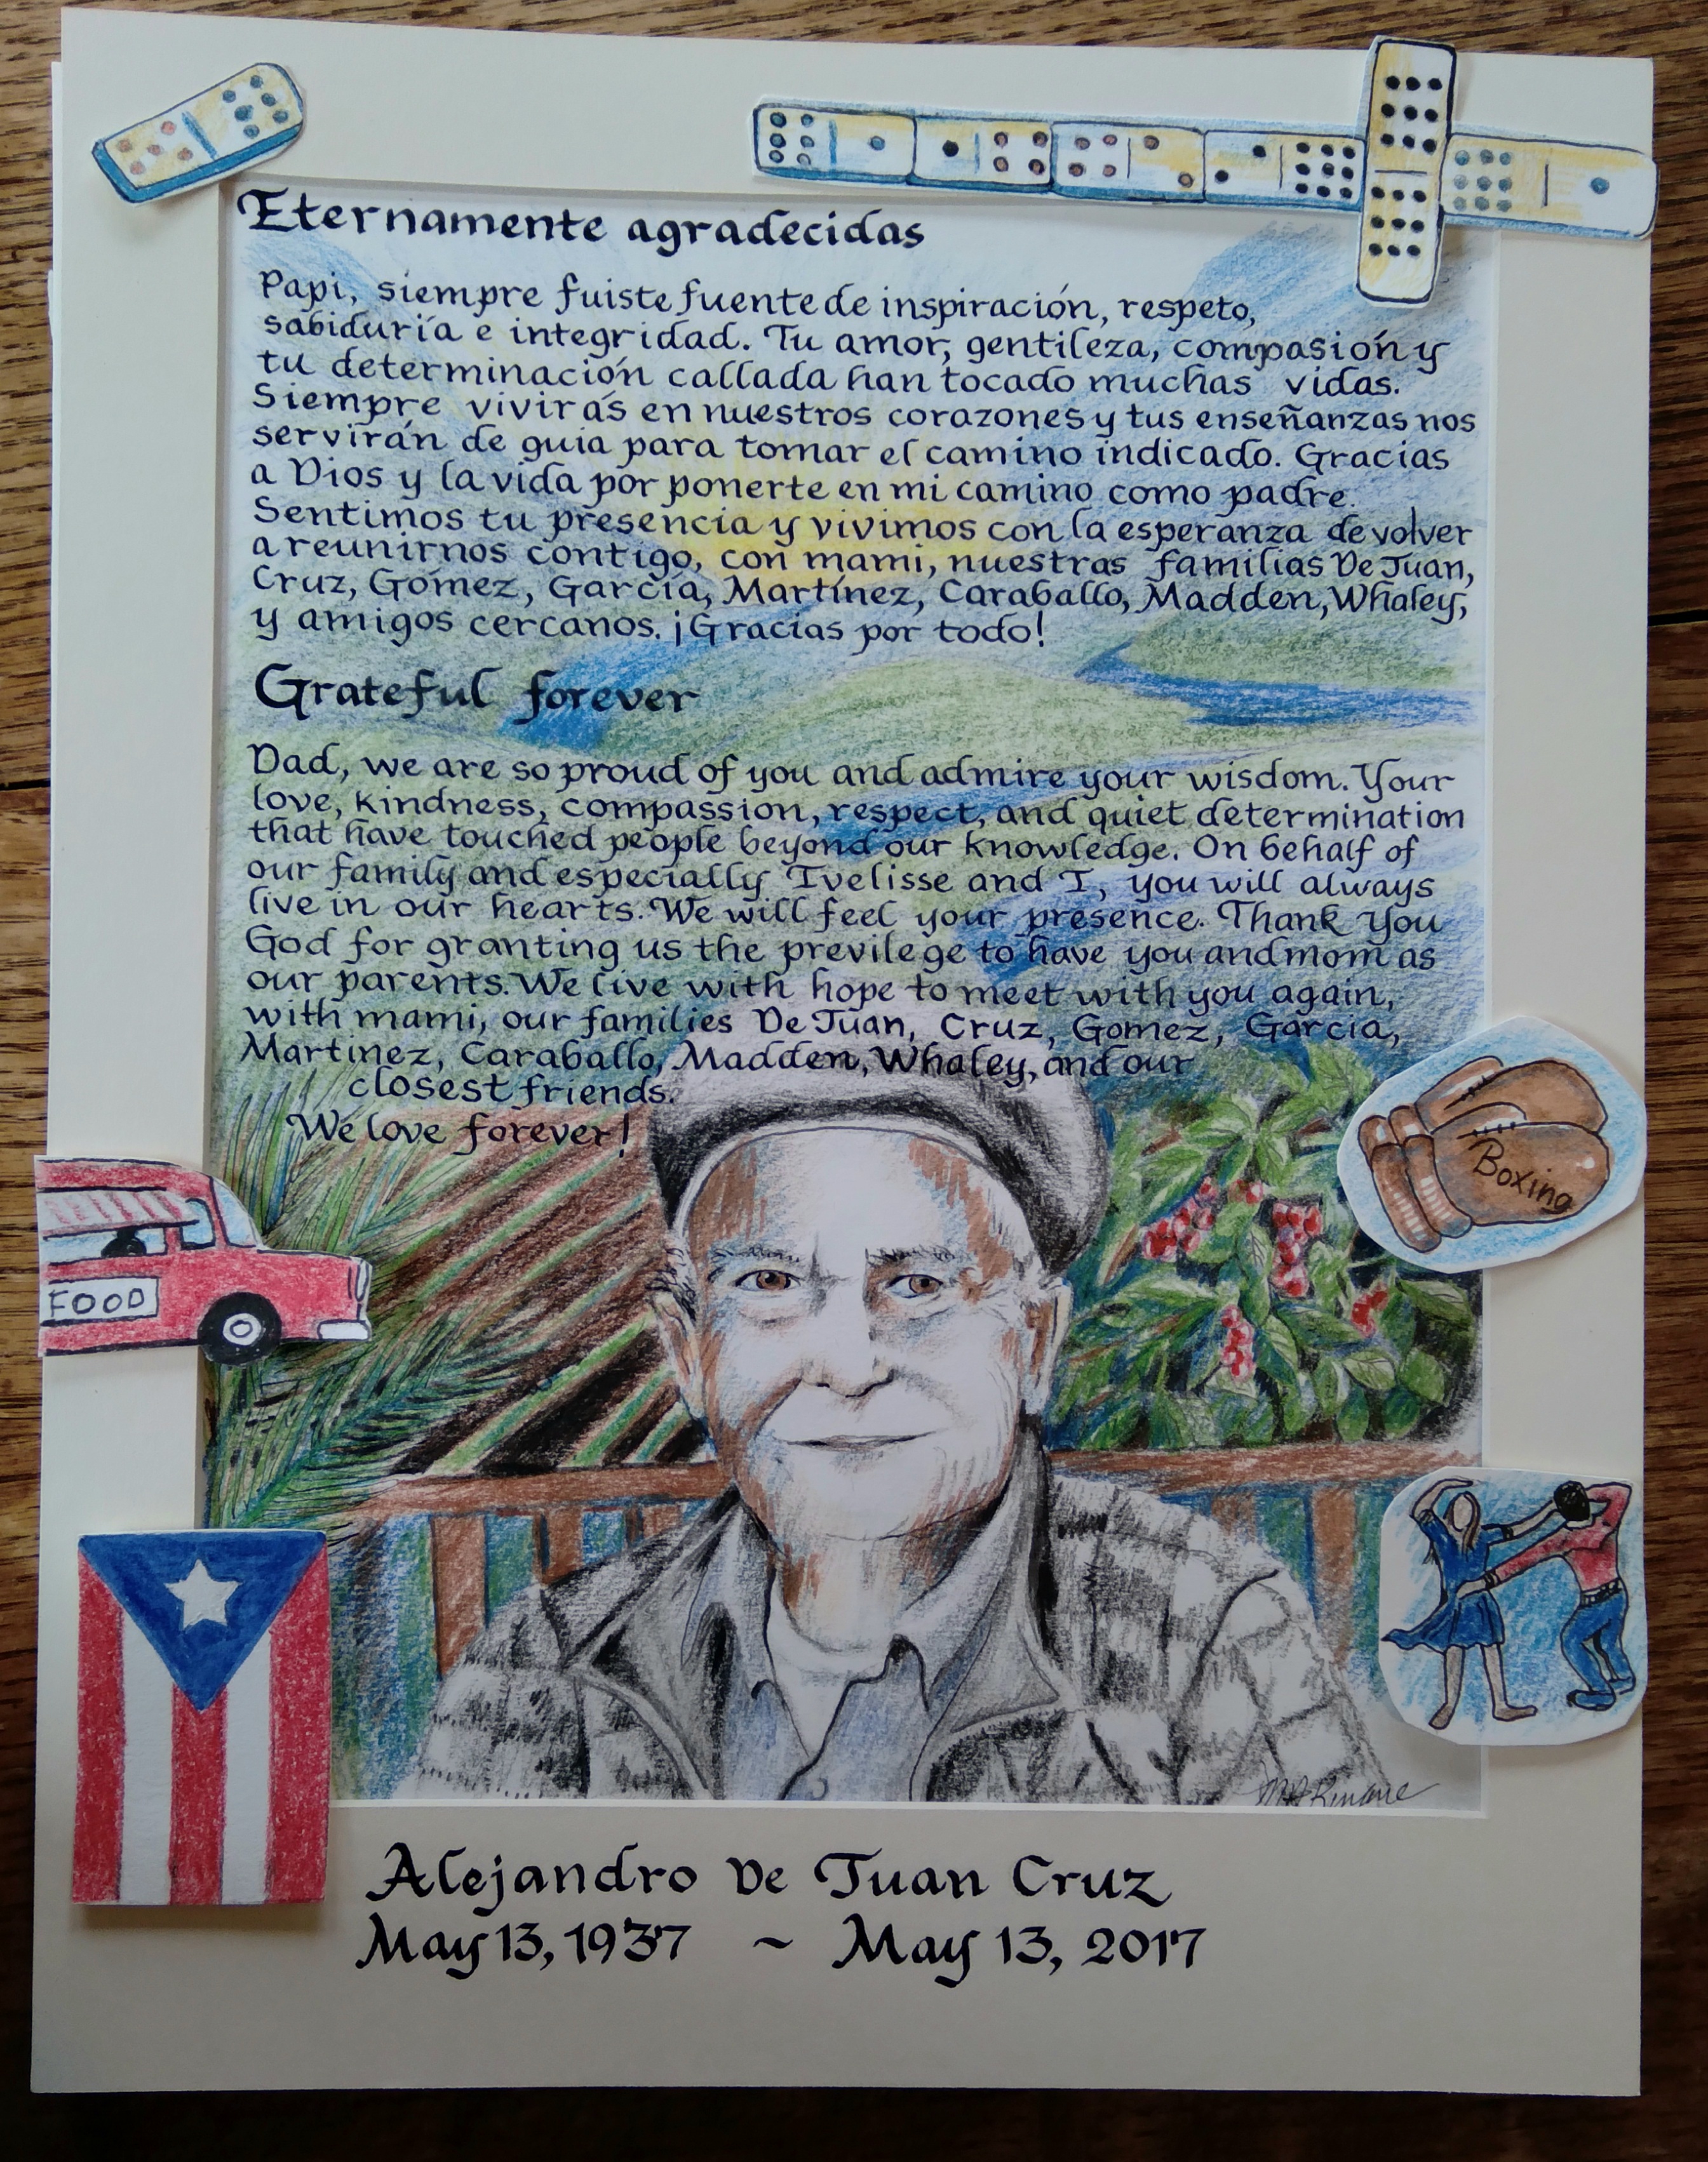 Eternamente agradecidas
Papi, siempre fuiste fuente de inspiración, respeto,
sabiduría e integridad. Tu amor, gentileza, compasión y
tu determinación callada han tocado muchas vidas.
Siempre vivirás en nuestros corazones y tus enseñanzas nos
servirán de guia para tomar el camino indicado. Gracias
a Dios y la vida por ponerte en mi camino como padre.
Sentimos tu presencia y vivimos con la esperanza de volver
a reunirnos contigo, con mami, nuestras familias De Juan,
Cruz, Gómez, García, Martínez, Caraballo, Madden, Whaley,
y amigos cercanos. ¡Gracias por todo!
Grateful forever
Dad, we are so proud of you and admire your wisdom. Your
love, kindness, compassion, respect, and quiet determination
that have touched people beyond our knowledge. On behalf of
our family and especially Ivelisse and I, you will always
live in our hearts. We will feel your presence. Thank You
God for granting us the previlege to have you and mom as
our parents. We live with hope to meet with you again,
with mami, our families De Juan, Cruz, Gomez, Garcia,
Martinez, Caraballo, Madden, Whaley, and our
closest friends.
We love forever!
Boxing
FOOD
Alejandro De Juan Cruz
May 13, 1937 ~ May 13, 2017